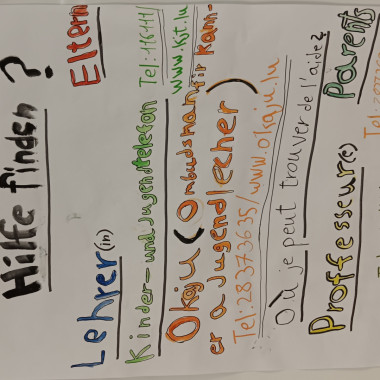 Hilfe finden ?
Lehrer(in) Eltern
Kinder-und Jugendtelefon Tel:116111/
www.kjt.lu
Okaju (Ombudsman fir Kann-
er a Jugendlecher)
Tel:28373635/www.okaju.lu
Où je peut trouver de l'aide?
Proffesseur(e) Parents